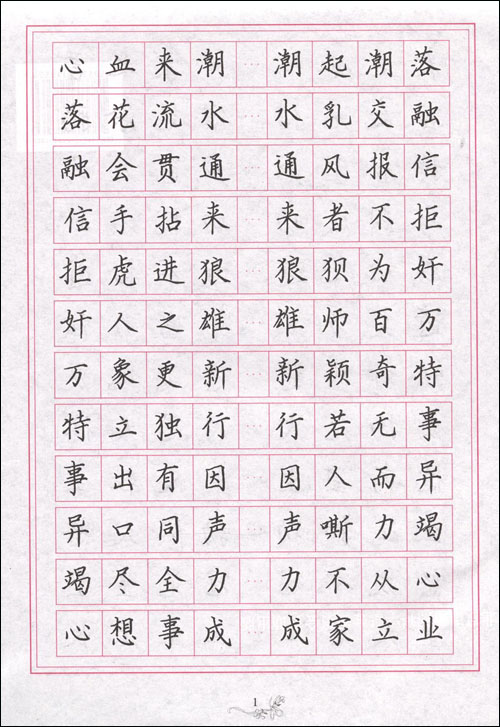 心血来潮……潮起潮落
落花流水……水乳交融
融会贯通……通风报信
信手拈来……来者不拒
拒虎进狼……狼狈为奸
奸人之雄……雄师百万
万象更新……新颖奇特
特立独行……行若无事
事出有因……因人而异
异口同声……声嘶力竭
竭尽全力……力不从心
心想事成……成家立业
1